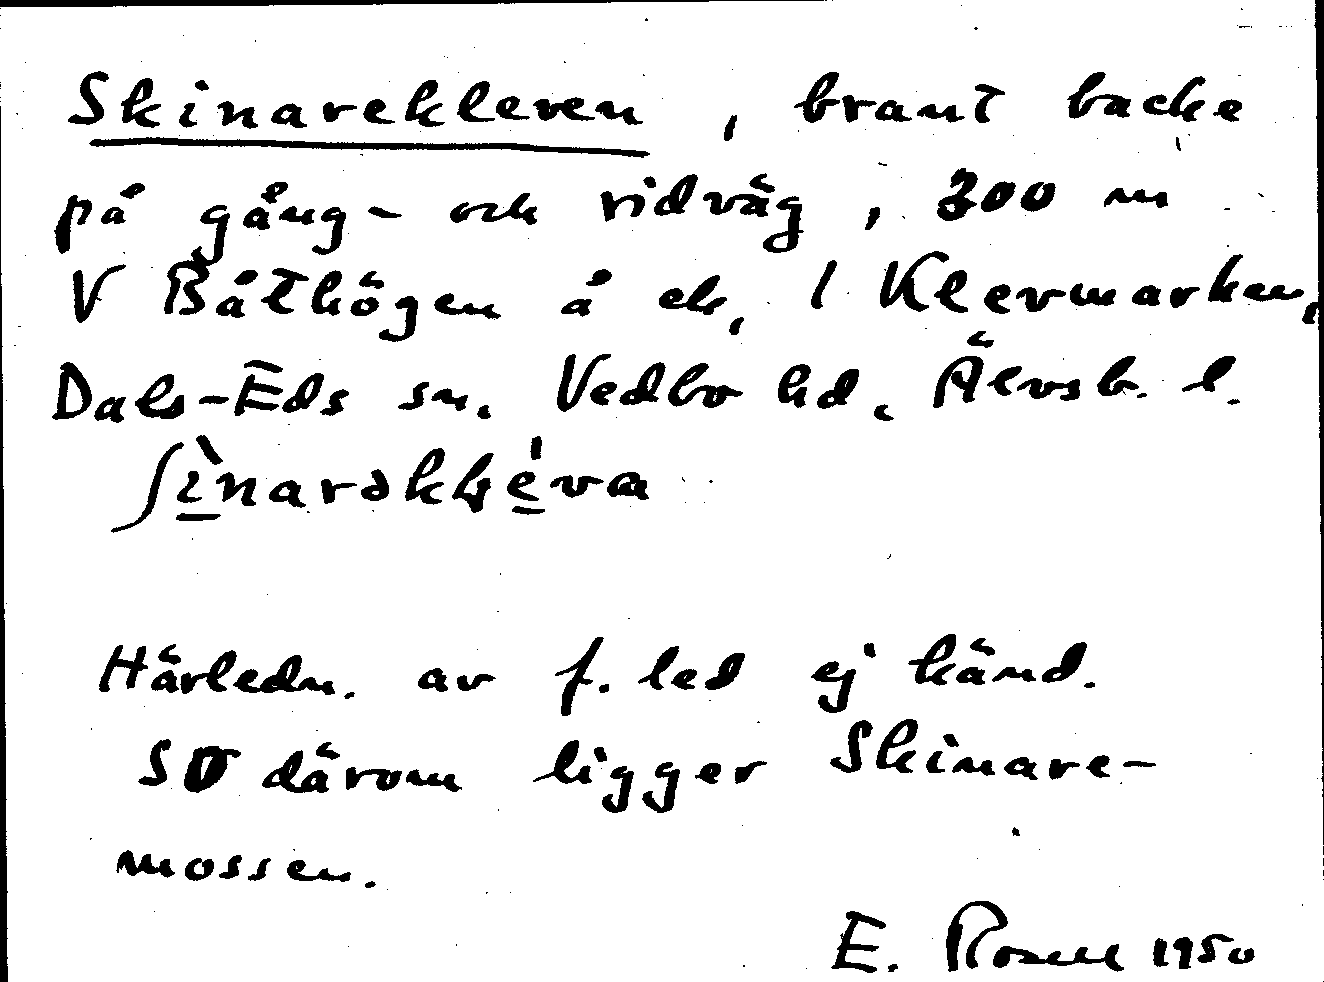 Skinarekleven, brant backe
på gång- och ridväg, 300 m
V Båthögen å ek, I Klevmarken,
Dals-Eds sn. Vedbo hd, Älvsb. l.
ʃìnarəkḷe̱va
Härledn. av f. led ej känd.
SO därom ligger Skinare-
mossen.
E. 1950